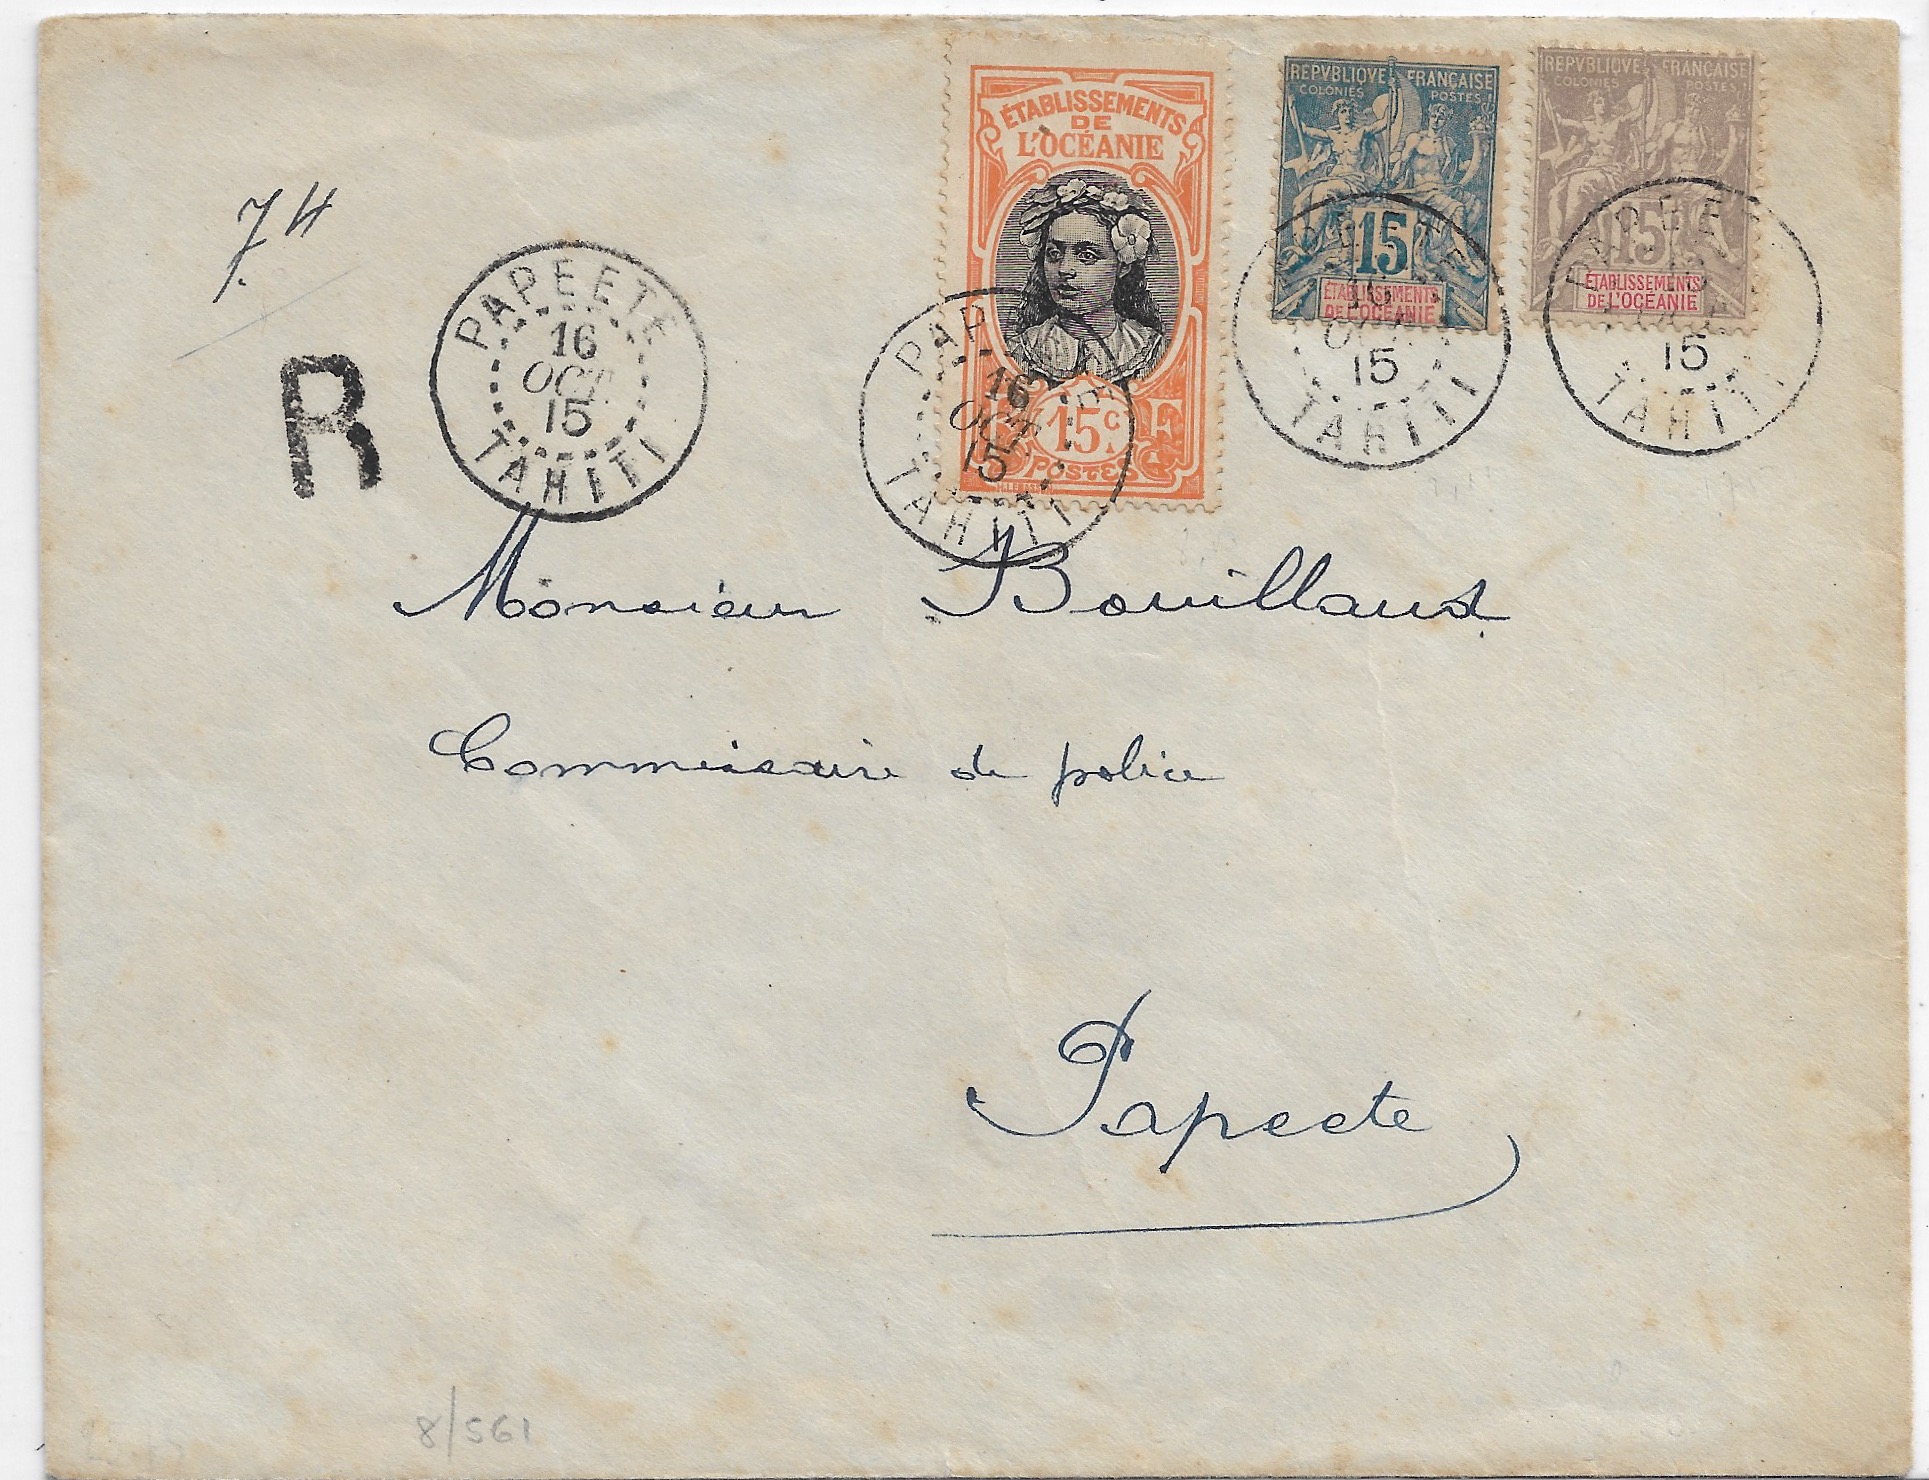 74
R
PAPEETE
16
OCT.
15
TAHITI
ÉTABLISSEMENTS
DE
L'OCÉANIE
15c
F
POSTES
PAPEETE
16
OCT.
15
TAHITI
REPVBLIQVE FRANÇAISE
COLONIES POSTES
15
ÉTABLISSEMENTS
DE L'OCÉANIE
15
TAHITI
REPVBLIQVE FRANÇAISE
COLONIES POSTES
15
ÉTABLISSEMENTS
DE L'OCÉANIE
PAPEETE
15
TAHITI
Monsieur Bouillaud
Commissaire de police
Papeete
8/561